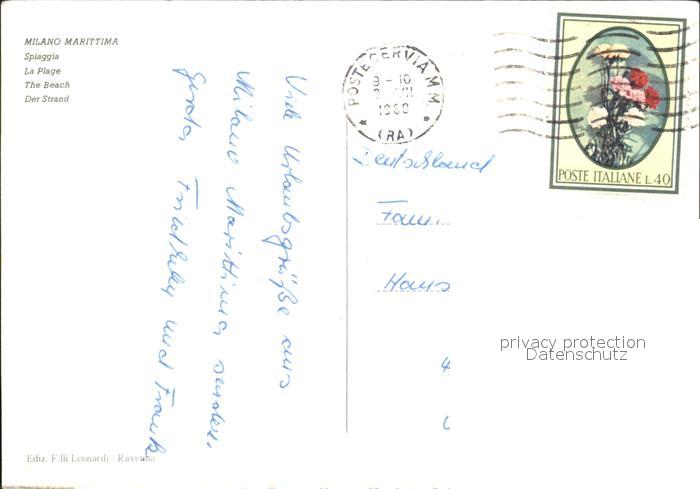 MILANO MARITTIMA
Spiaggia
La Plage
The Beach
Der Strand
Viele Urlaubsgrüße aus
Milano Marittima senden
Gerda, und Frank
POSTE CERVIA M.M.
9-10
1968
(RA)
POSTE ITALIANE L.40
Deutschland
Fam.
Hans
4
privacy protection
Datenschutz
Ediz. F.lli Leonardi - Ravenna